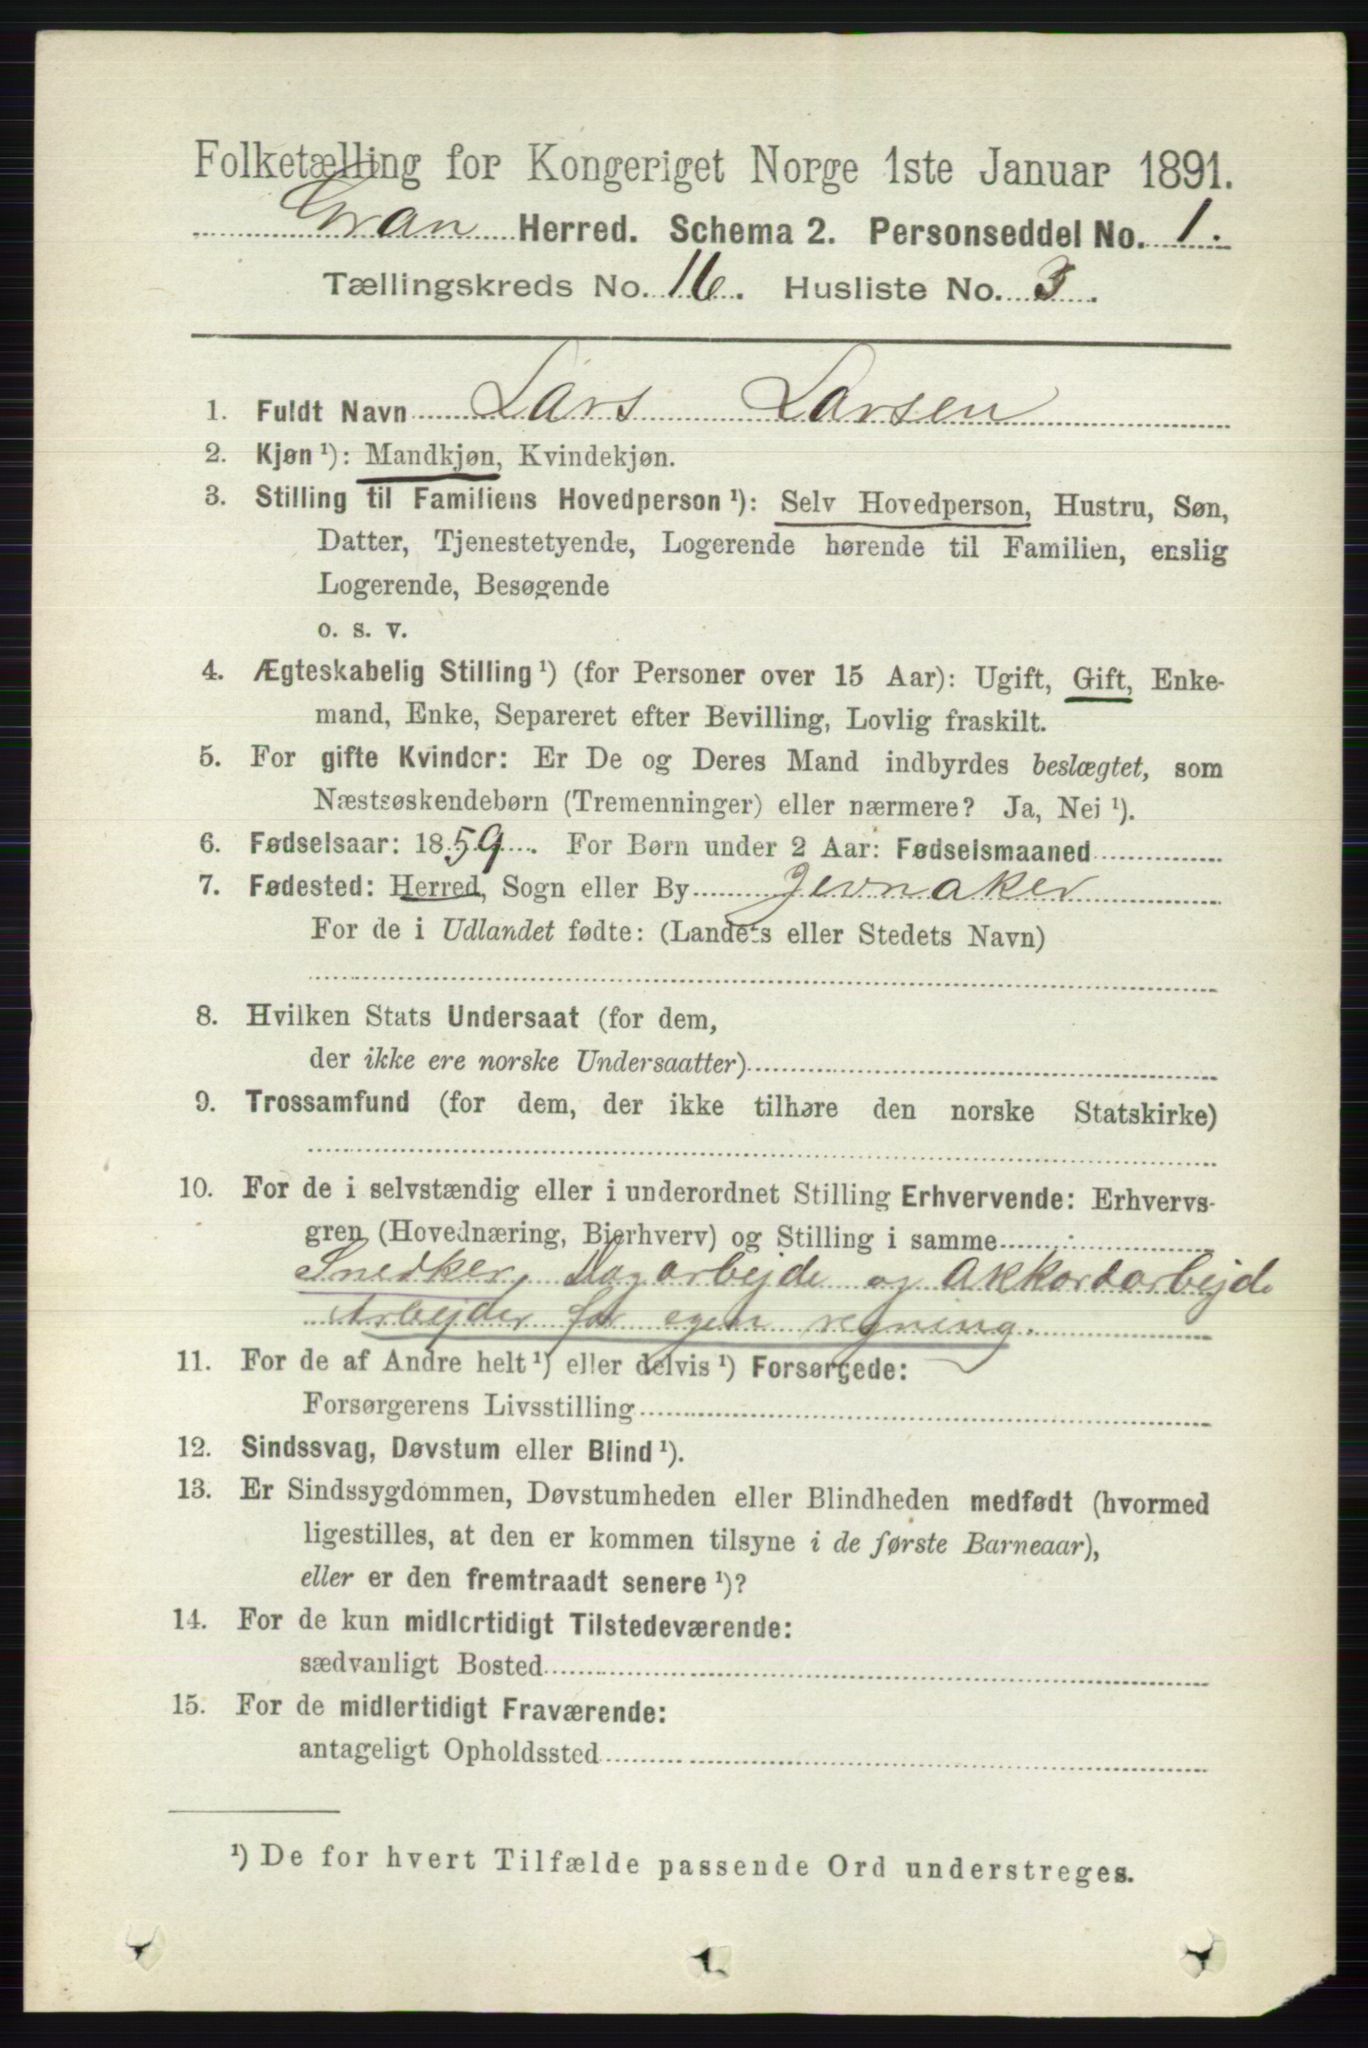 Folketælling for Kongeriget Norge 1ste Januar 1891.
Gran Herred. Schema 2. Personseddel No. 1.
Tællingskreds No. 16. Husliste No. 3.
1. Fuldt Navn Lars Larsen
2. Kjøn ¹): Mandkjøn, Kvindekjøn.
3. Stilling til Familiens Hovedperson ¹): Selv Hovedperson, Hustru, Søn,
Datter, Tjenestetyende, Logerende hørende til Familien, enslig
Logerende, Besøgende
o. s. v.
4. Ægteskabelig Stilling ¹) (for Personer over 15 Aar): Ugift, Gift, Enke-
mand, Enke, Separeret efter Bevilling, Lovlig fraskilt.
5. For gifte Kvinder: Er De og Deres Mand indbyrdes beslægtet, som
Næstsøskendebørn (Tremenninger) eller nærmere? Ja, Nei ¹).
6. Fødselsaar: 1859. For Børn under 2 Aar: Fødselsmaaned
7. Fødested: Herred, Sogn eller By Jevnaker
For de i Udlandet fødte: (Landets eller Stedets Navn)
8. Hvilken Stats Undersaat (for dem,
der ikke ere norske Undersaatter)
9. Trossamfund (for dem, der ikke tilhøre den norske Statskirke)
10. For de i selvstændig eller i underordnet Stilling Erhvervende: Erhvervs-
gren (Hovednæring, Bierhverv) og Stilling i samme
Snedker, Dagarbejde og Akkordarbejde
Arbejder for egen regning.
11. For de af Andre helt ¹) eller delvis ¹) Forsørgede:
Forsørgerens Livsstilling
12. Sindssvag, Døvstum eller Blind ¹).
13. Er Sindssygdommen, Døvstumheden eller Blindheden medfødt (hvormed
ligestilles, at den er kommen tilsyne i de første Barneaar),
eller er den fremtraadt senere ¹)?
14. For de kun midlertidigt Tilstedeværende:
sædvanligt Bosted
15. For de midlertidigt Fraværende:
antageligt Opholdssted
¹) De for hvert Tilfælde passende Ord understreges.